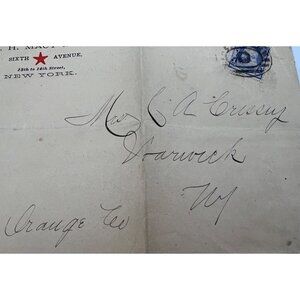 . H. MACY
SIXTH AVENUE,
13th to 14th Street,
NEW YORK.
Mrs C A Crissey
Warwick
NY
Orange Co